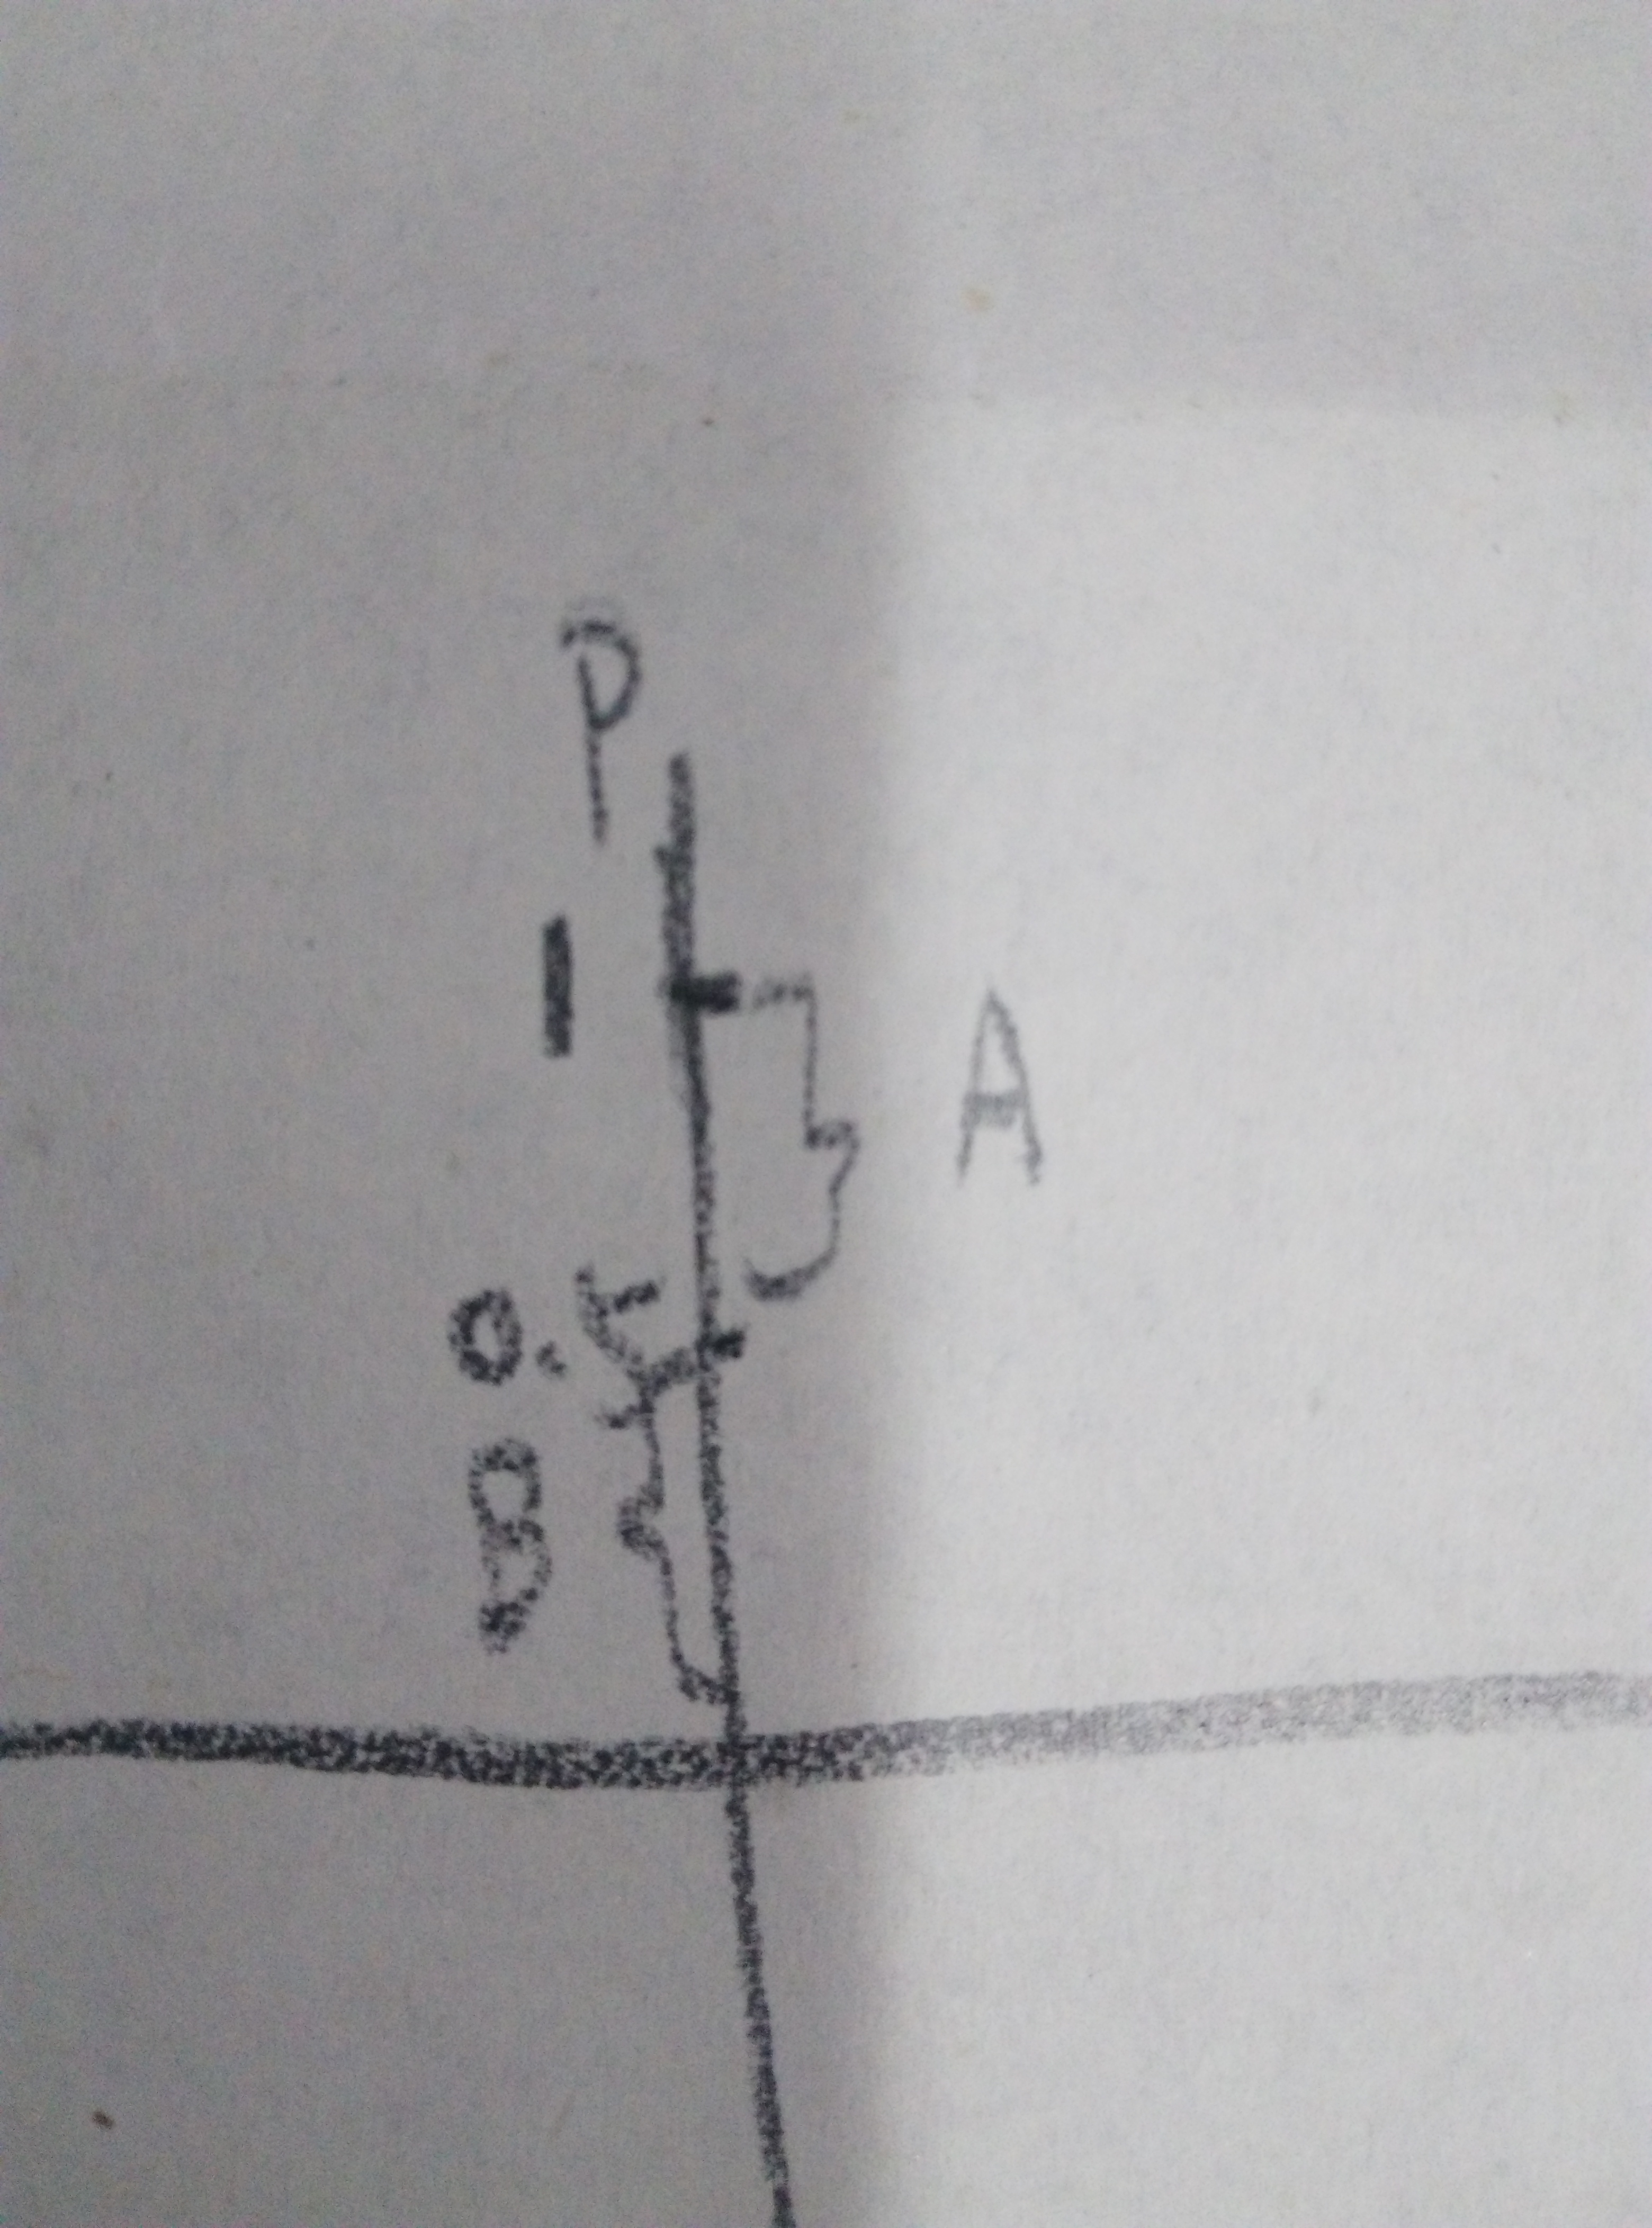 P
1
A
0.5
B